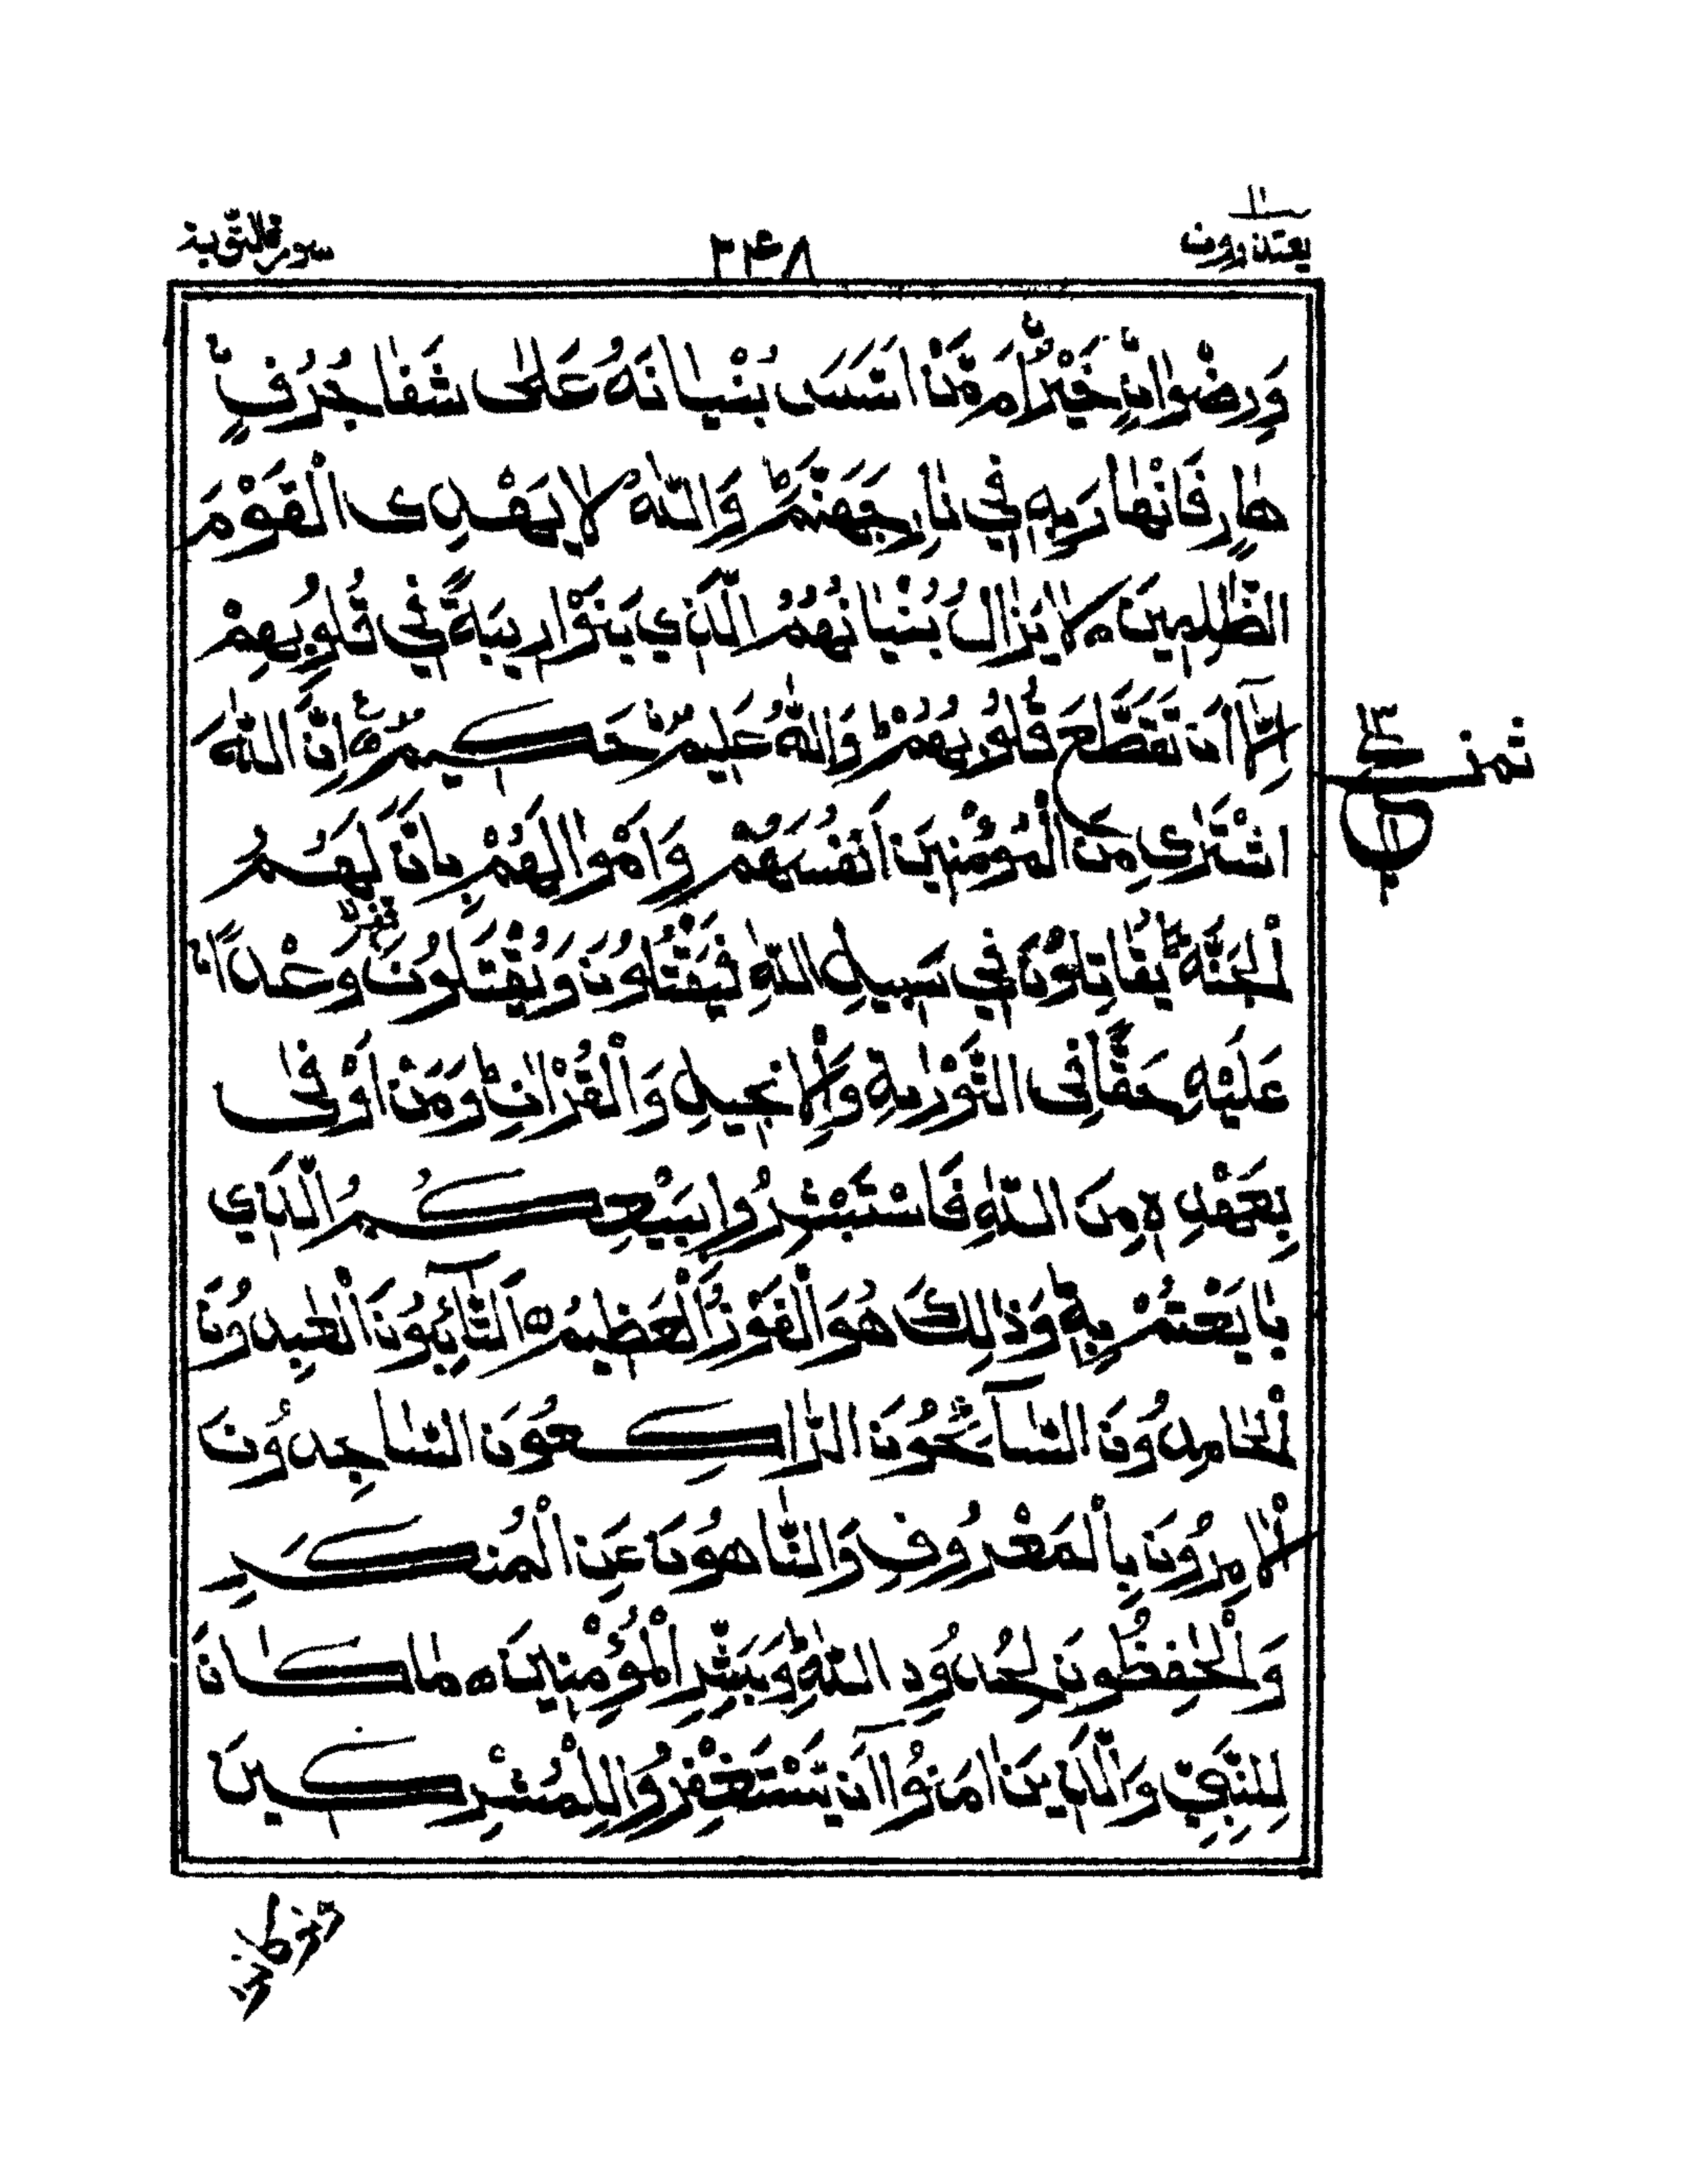 يعتذرون ١١
٢٤٨
سورة التوبة
وَرِضْوَانٍ خَيْرٌ أَم مَّنْ اَسَّسَ بُنْيَانَهُ عَلٰى شَفَا جُرُفٍ
هَارٍ فَانْهَارَ بِهٖ فِي نَارِ جَهَنَّمَ ط وَاللّٰهُ لَا يَهْدِى الْقَوْمَ
الظّٰلِمِينَ ه لَا يَزَالُ بُنْيَانُهُمُ الَّذِي بَنَوْا رِيبَةً فِي قُلُوبِهِمْ
اِلَّآ اَن تَقَطَّعَ قُلُوبُهُمْ ط وَاللّٰهُ عَلِيمٌ حَكِيمٌ ه ع اِنَّ اللّٰهَ
ثمن
١٣
اشْتَرٰى مِنَ الْمُؤْمِنِينَ اَنفُسَهُمْ وَاَمْوَالَهُمْ بِاَنَّ لَهُمُ
الْجَنَّةَ ط يُقَاتِلُونَ فِي سَبِيلِ اللّٰهِ فَيَقْتُلُونَ وَيُقْتَلُونَ وَعْدًا
عَلَيْهِ حَقًّا فِى التَّوْرٰىةِ وَالْاِنجِيلِ وَالْقُرْاٰنِ ط وَمَنْ اَوْفٰى
بِعَهْدِهٖ مِنَ اللّٰهِ فَاسْتَبْشِرُوا بِبَيْعِكُمُ الَّذِي
بَايَعْتُمْ بِهٖ ط وَذٰلِكَ هُوَ الْفَوْزُ الْعَظِيمُ ه اَلتَّآئِبُونَ الْعٰبِدُونَ
الْحَامِدُونَ السَّآئِحُونَ الرَّاكِعُونَ السَّاجِدُونَ
الْاٰمِرُونَ بِالْمَعْرُوفِ وَالنَّاهُونَ عَنِ الْمُنكَرِ
وَالْحٰفِظُونَ لِحُدُودِ اللّٰهِ ط وَبَشِّرِ الْمُؤْمِنِينَ ه مَا كَانَ
لِلنَّبِيِّ وَالَّذِينَ اٰمَنُوْآ اَن يَّسْتَغْفِرُوا لِلْمُشْرِكِينَ